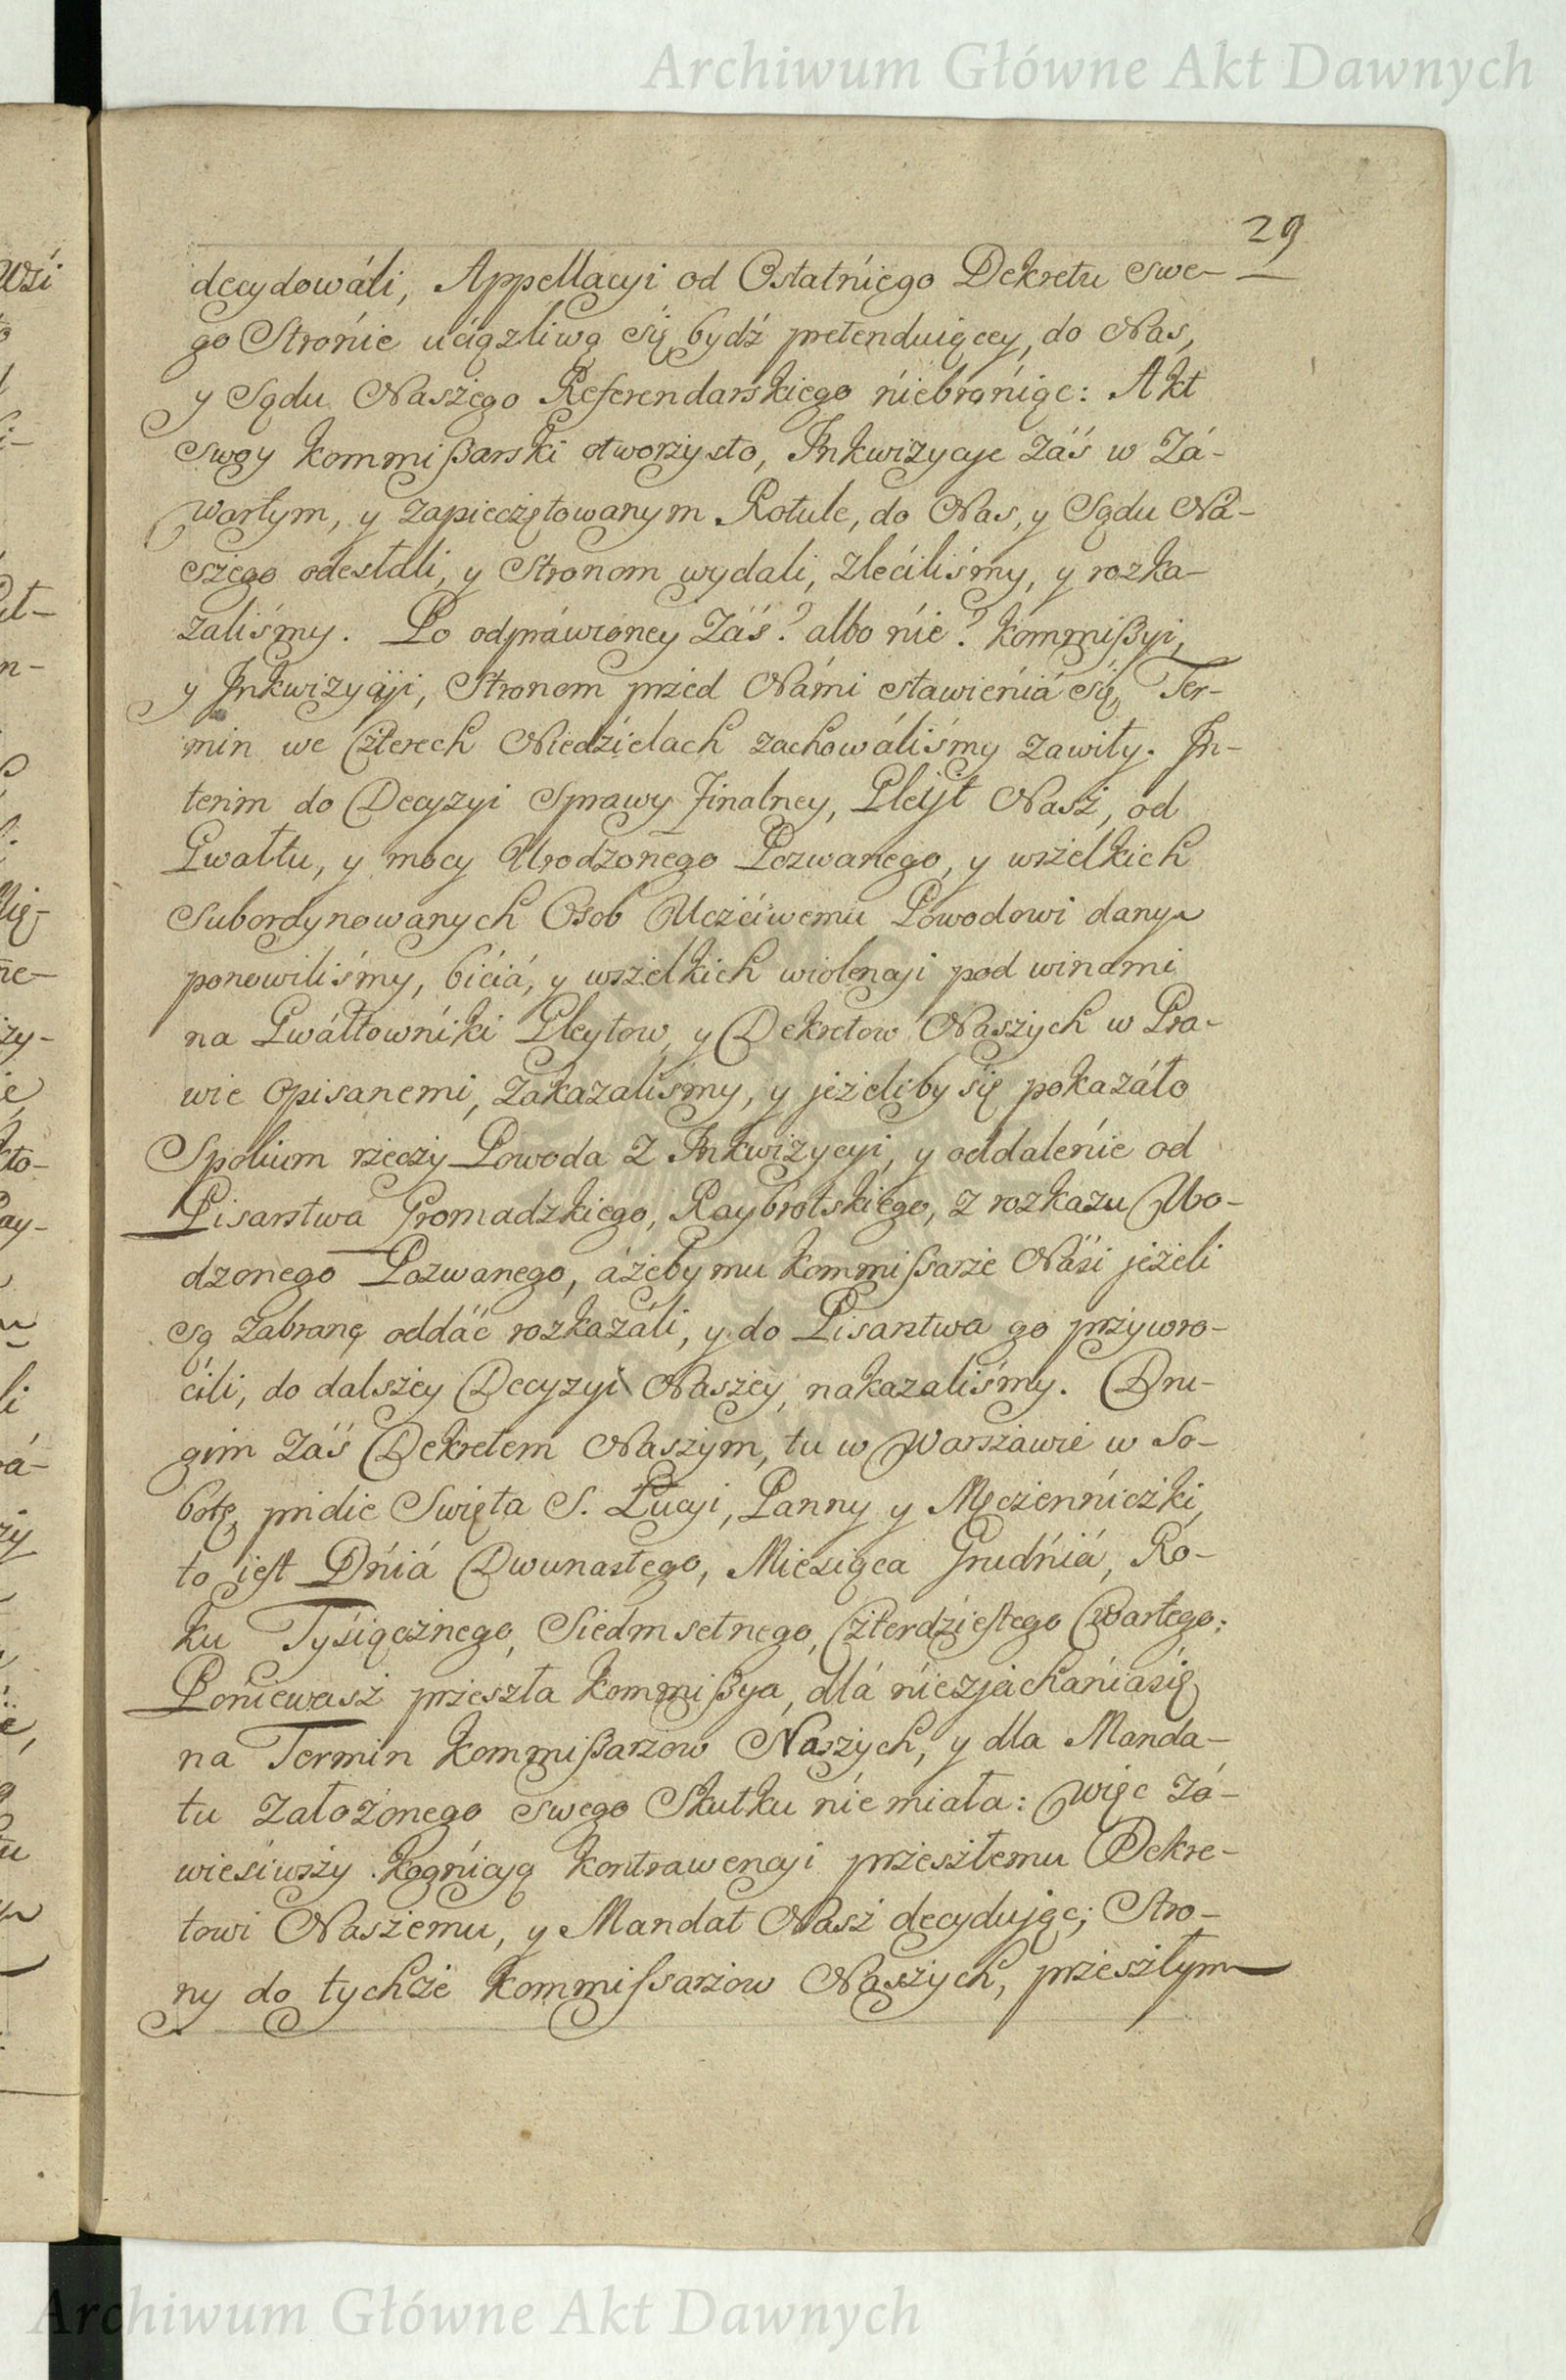 Archiwum Główne Akt Dawnych
29
decydowáli, Appellacyi od Ostatńiego Dekretu swe-
go Strońie ućiązliwą się bydź pretenduiącey, do Nas,
y Sądu Naszego Referendarskiego ńiebrońiąc: Akt
swoy kommißarski otworzysto, Inkwizycye Záś w Zá-
wartym, y zapieczętowanym Rotule, do Nas, y Sądu Ná-
szego odesłali, y Stronom wydali, zlećiliśmy, y rozka-
zaliśmy. Po odpráwioney Záś? albo ńie? kommißyi,
y Inkwizycyji, Stronom przed Námi stawieńiá się, Ter-
min we Czterech Niedźielach zachowáliśmy zawity. In-
terim do Decyzyi Sprawy Finalney, Pleyt Nasz, od
Gwałtu, y mocy Urodzonego Pozwanego, y wszelkich
subordynowanych Osob Uczćiwemu Powodowi dany
ponowiliśmy, bićiá, y wszelkich wiolencji pod winami
na Gwáłtowńiki Pleytow, y Dekretow Naszych w Pra-
wie opisanemi, zakazaliśmy, y jeżeliby się pokazáło
Spolium rzeczy Powoda z Inkwizycyi, y oddaleńie od
Pisarstwa Gromadzkiego, Raybrotskiego, z rozkazu Uro-
dzonego Pozwanego, ażeby mu kommißarze Náśi jeżeli
są zabranę oddáć rozkazáli, y do Pisarstwa go przywro-
ćili, do dalszey Decyzyi Naszey, nakazaliśmy. Dru-
gim Záś Dekretem Naszym, tu w Warszawie w So-
botę, pridie Swięta S. Łucyi, Panny y Męczenńiczki,
to iest Dńiá Dwunastego, Mieśiąca Grudńiá, Ro-
ku Tyśiącznego, Siedmsetnego, Czterdziestego Czwartego;
Pońiewasz przeszła kommißya, dlá ńiezjacháńia się,
na Termin kommißarzow Naszych, y dla Manda-
tu założonego swego Skutku ńie miała: więc Zá-
wieśiwszy kogńicyą kontrawencji przeszłemu Dekre-
towi Naszemu, y Mandat Nasz decydując; Stro-
ny do tychże kommißarzow Naszych, przeszłym
Archiwum Główne Akt Dawnych